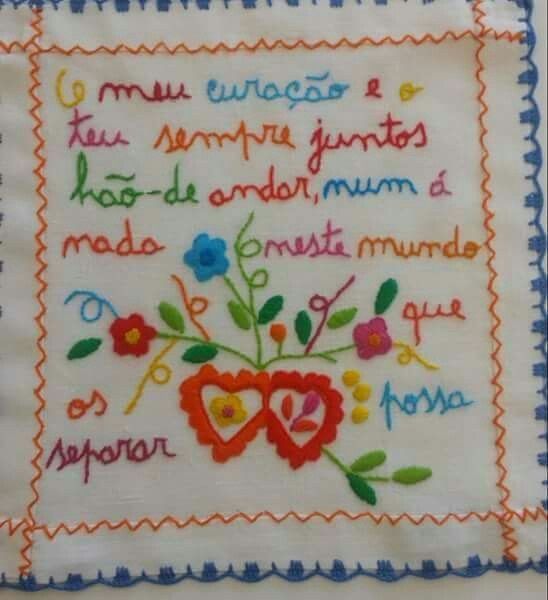 O meu curação e o
teu sempre juntos
hão-de andar, num á
nada neste mundo
que
os possa
separar